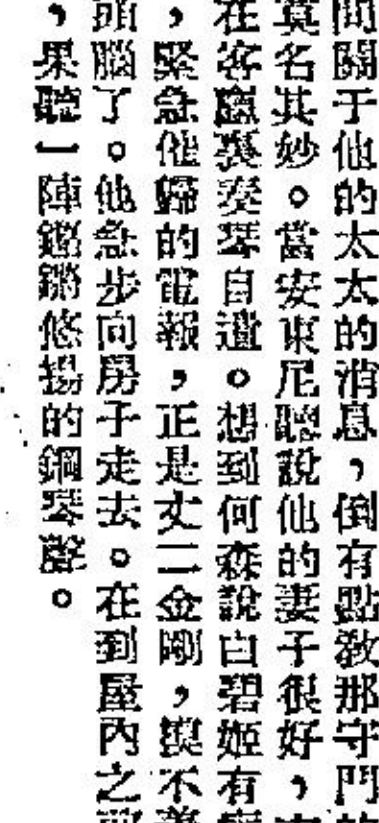 問關于他的太太的消息，倒有點教那守門
莫名其妙。當安東尼聽說他的妻子很好，
在客廳裏奏琴自遣。想到何森說白碧姬有
，緊急催歸的電報，正是丈二金剛，摸不
頭腦了。他急步向房子走去。在到屋內之
，果聽一陣鏗鏘悠揚的鋼琴聲。